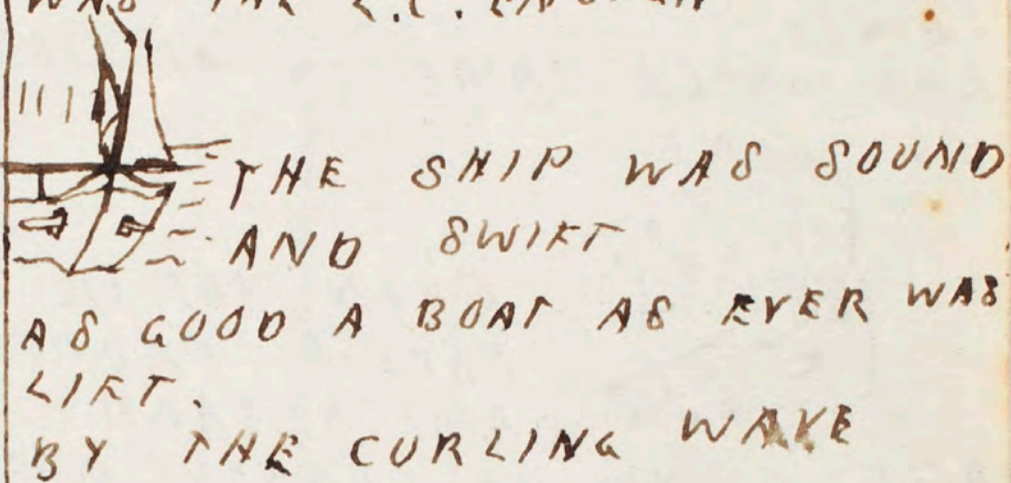 WAS THE
THE SHIP WAS SOUND
AND SWIFT
AS GOOD A BOAT AS EVER WAS
LIFT.
BY THE CURLING WAVE